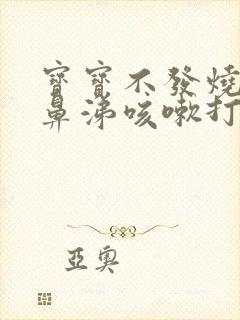 寶寶不發燒
鼻涕咳嗽打
亞奧